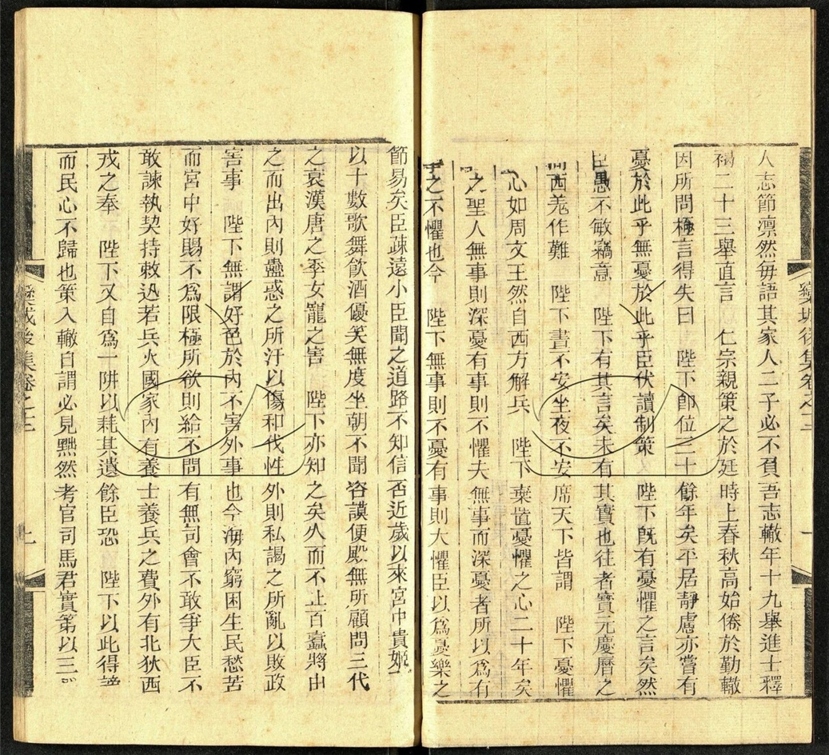 欒城後集卷之十二
人志節凛然每語其家人二子必不負吾志轍年十九舉進士釋
褐二十三舉直言 仁宗親策之於廷時上春秋高始倦於勤轍
因所問極言得失曰 陛下即位三十餘年矣平居靜慮亦嘗有
憂於此乎無憂於此乎臣伏讀制策 陛下既有憂懼之言矣然
臣愚不敏竊意 陛下有其言矣未有其實也往者寶元慶曆之
間西羌作難 陛下晝不安坐夜不安席天下皆謂 陛下憂懼
心如周文王然自西方解兵 陛下棄置憂懼之心二十年矣
之聖人無事則深憂有事則不懼夫無事而深憂者所以爲有
事之不懼也今 陛下無事則不憂有事則大懼臣以爲憂樂之
節易矣臣疎遠小臣聞之道路不知信否近歲以來宮中貴姬
以十數歌舞飲酒優笑無度坐朝不聞咨謨便殿無所顧問三代
之衰漢唐之季女寵之害 陛下亦知之矣久而不止百蠹將由
之而出內則蠱惑之所汙以傷和伐性外則私謁之所亂以敗政
害事 陛下無謂好色於內不害外事也今海內窮困生民愁苦
而宮中好賜不爲限極所欲則給不問有無司會不敢爭大臣不
敢諫執契持敕迅若兵火國家內有養士養兵之費外有北狄西
戎之奉 陛下又自爲一阱以耗其遺餘臣恐 陛下以此得謗
而民心不歸也策入轍自謂必見黜然考官司馬君實第以三
欒城後集卷之十二